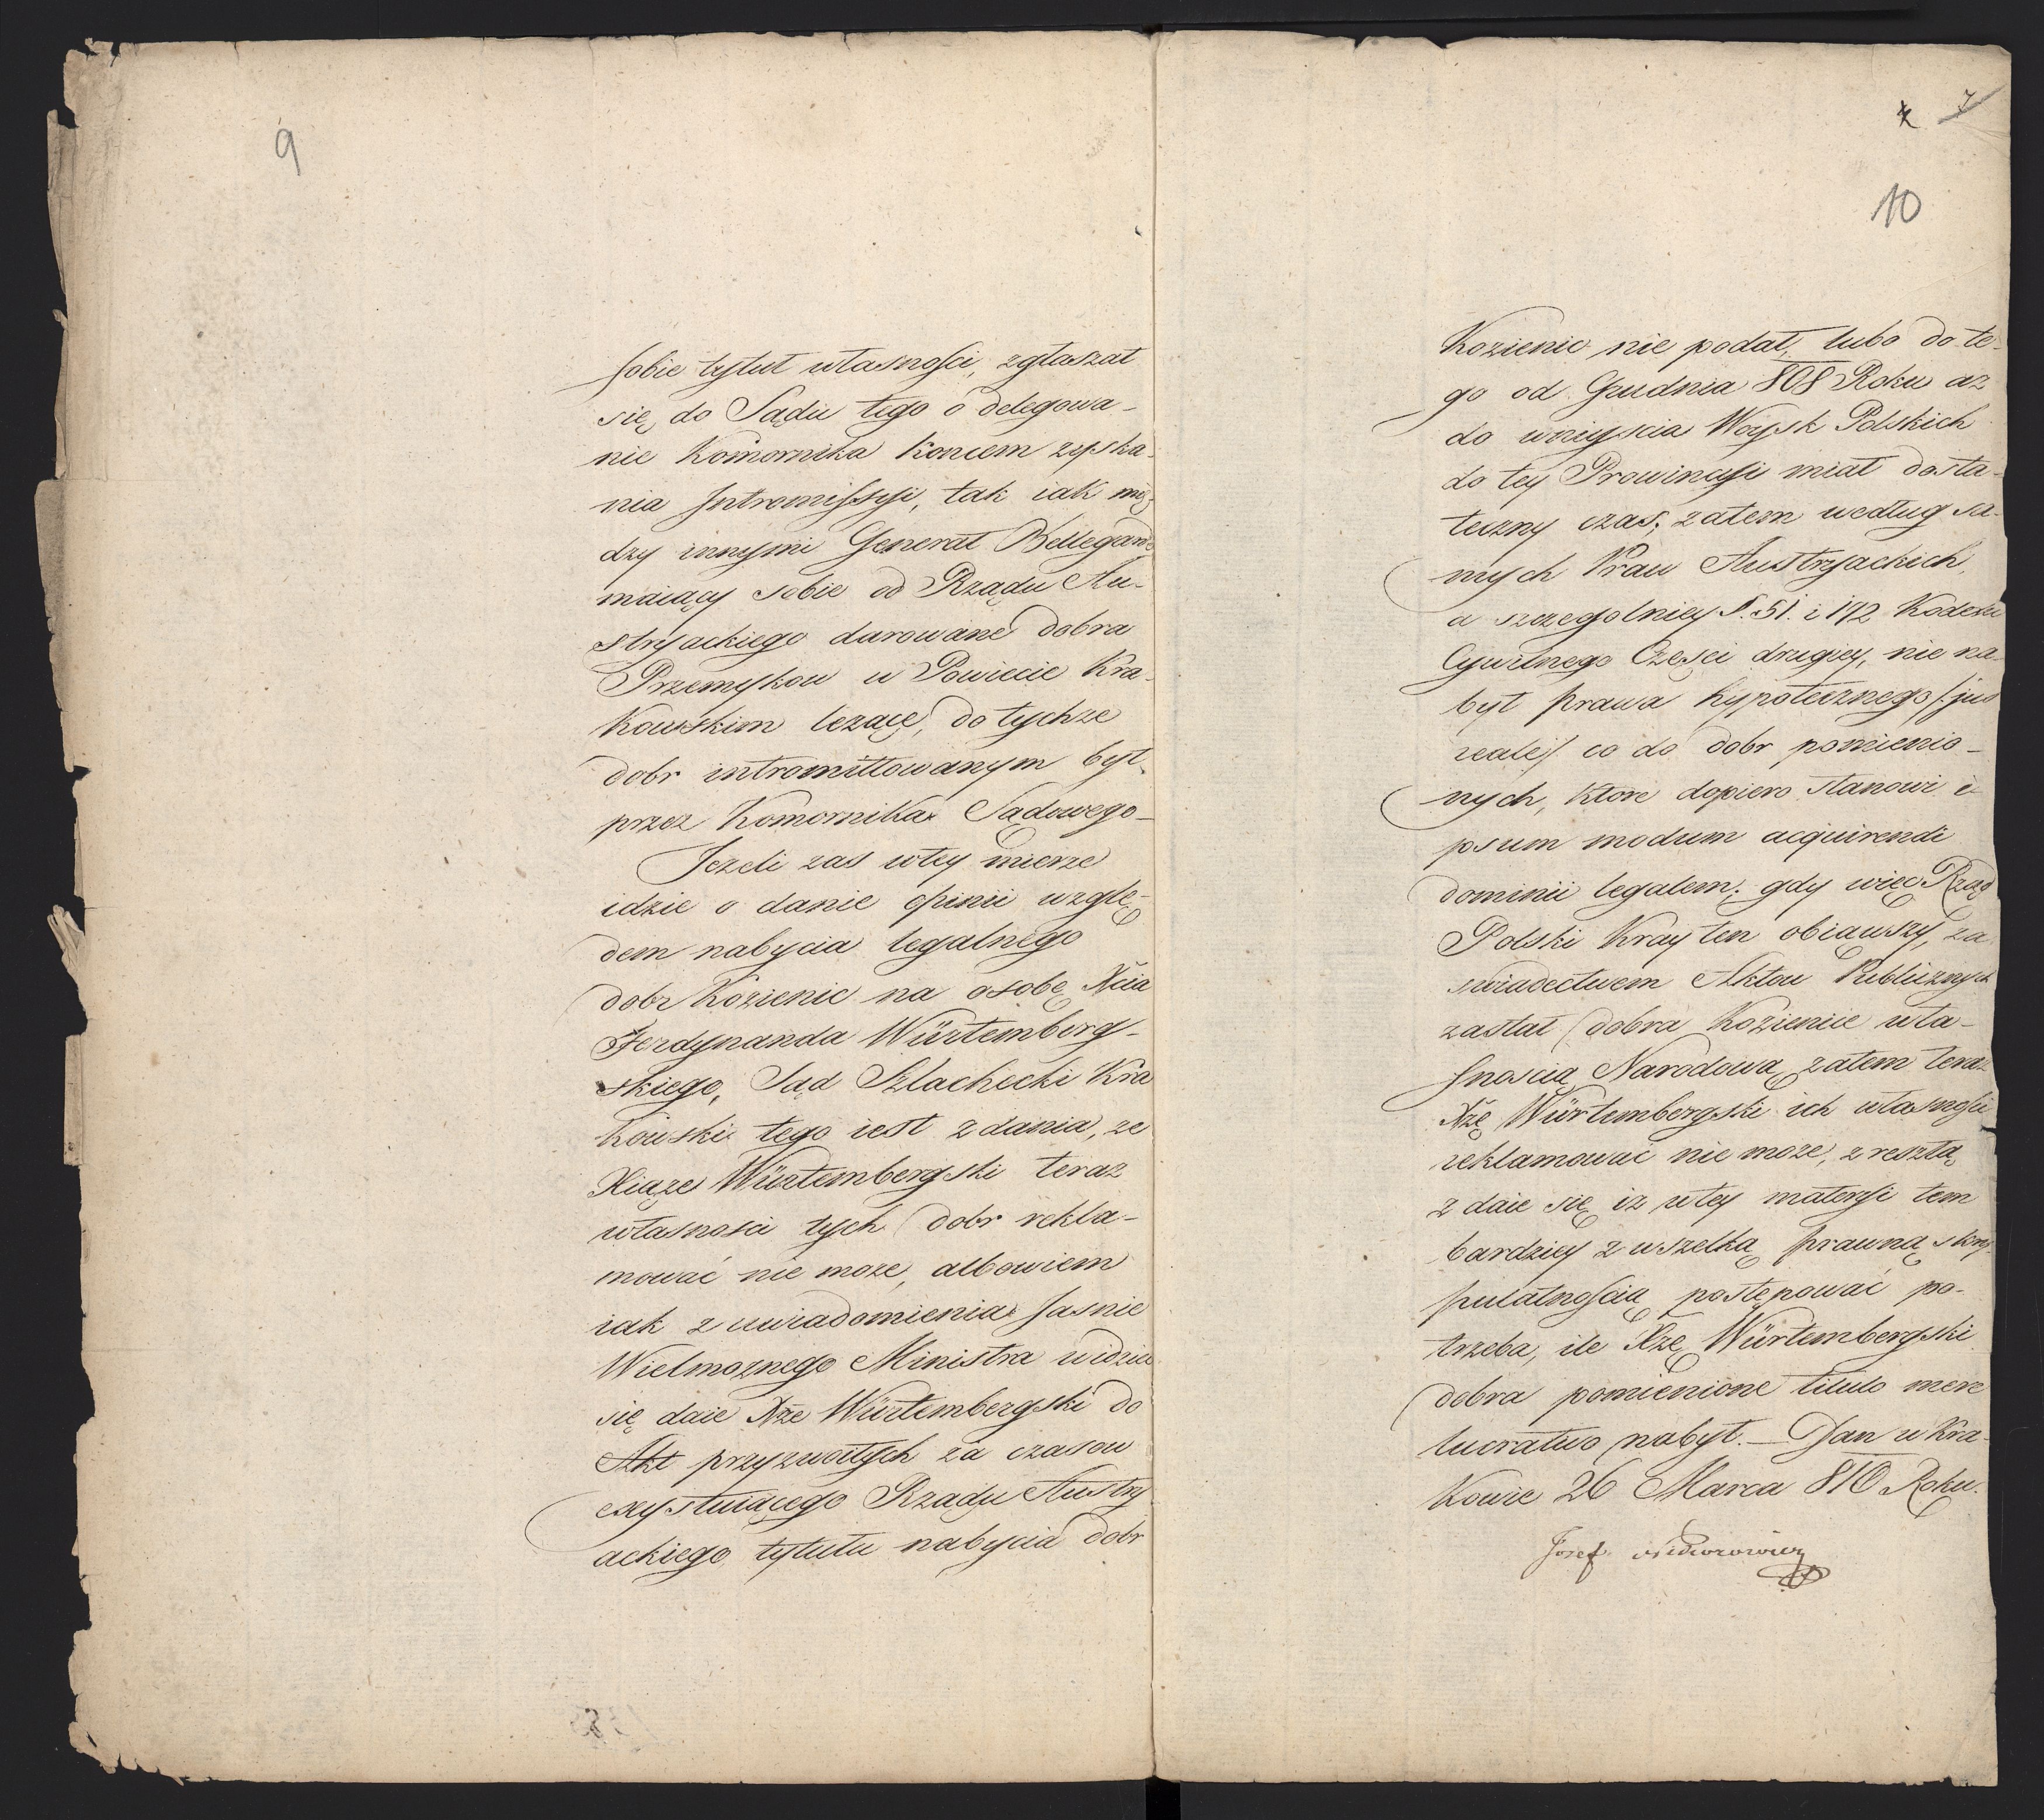 9
sobie tytuł własności, zgłaszał
się do Sądu tego o delegowa-
nie Komornika koncem zyska-
nia Intromissyi, tak iak mię-
dzy innymi Generał Bellegarde
maiący sobie od Rządu Au-
stryackiego darowane dobra
Przemykow w Powiecie Kra-
kowskim lezące, do tychze
dobr intromittowanym był
przez Komornika Sądowego
Jezeli zas w tey mierze
idzie o danie opinii wzglę-
dem nabycia legalnego
dobr Kozienic na osobę Xcia
Ferdynanda Würtemberg-
skiego, Sąd Szlachecki Kra
kowski tego iest zdania, ze
Xiąze Würtembergski teraz
własności tych dobr rekla-
mować nie moze, albowiem
iak z uwiadomienia Jasnie
Wielmoznego Ministra widzieć
się daie Xże Würtembergski do
Akt przyzwoitych za czasow
exystuiącego Rządu Austry
ackiego tytułu nabycia dobr
7
10
Kozienic nie podał, lubo do te-
go od Grudnia 808 Roku az
do wniyscia Woysk Polskich
do tey Prowincyi miał dosta-
teczny czas; zatem według sa-
mych Praw Austryackich
a szczegolniey §. 51. i 192 Kodexu
Cywilnego Częsci drugiey, nie na-
był prawa hypotecznego /:jus
reale/ co do dobr pomienio-
nych, ktore dopiero stanowi i-
psum modum acquirendi
dominii legalem; gdy więc Rząd
Polski Kray ten obiąwszy, za
swiadectwem Aktow Publicznych
zastał dobra Kozienice wła-
snoscią Narodową, zatem teraz
Xżę Würtembergski ich własności
reklamować nie moze, zresztą
zdaie się iz w tey materyi tem
bardziey z wszelką prawną skru-
pulatnością postępować po-
trzeba, ile Xżę Würtembergski
dobra pomienione titulo mere
lucrativo nabył. — Dan w Kra-
kowie 26 Marca 810 Roku.
Josef